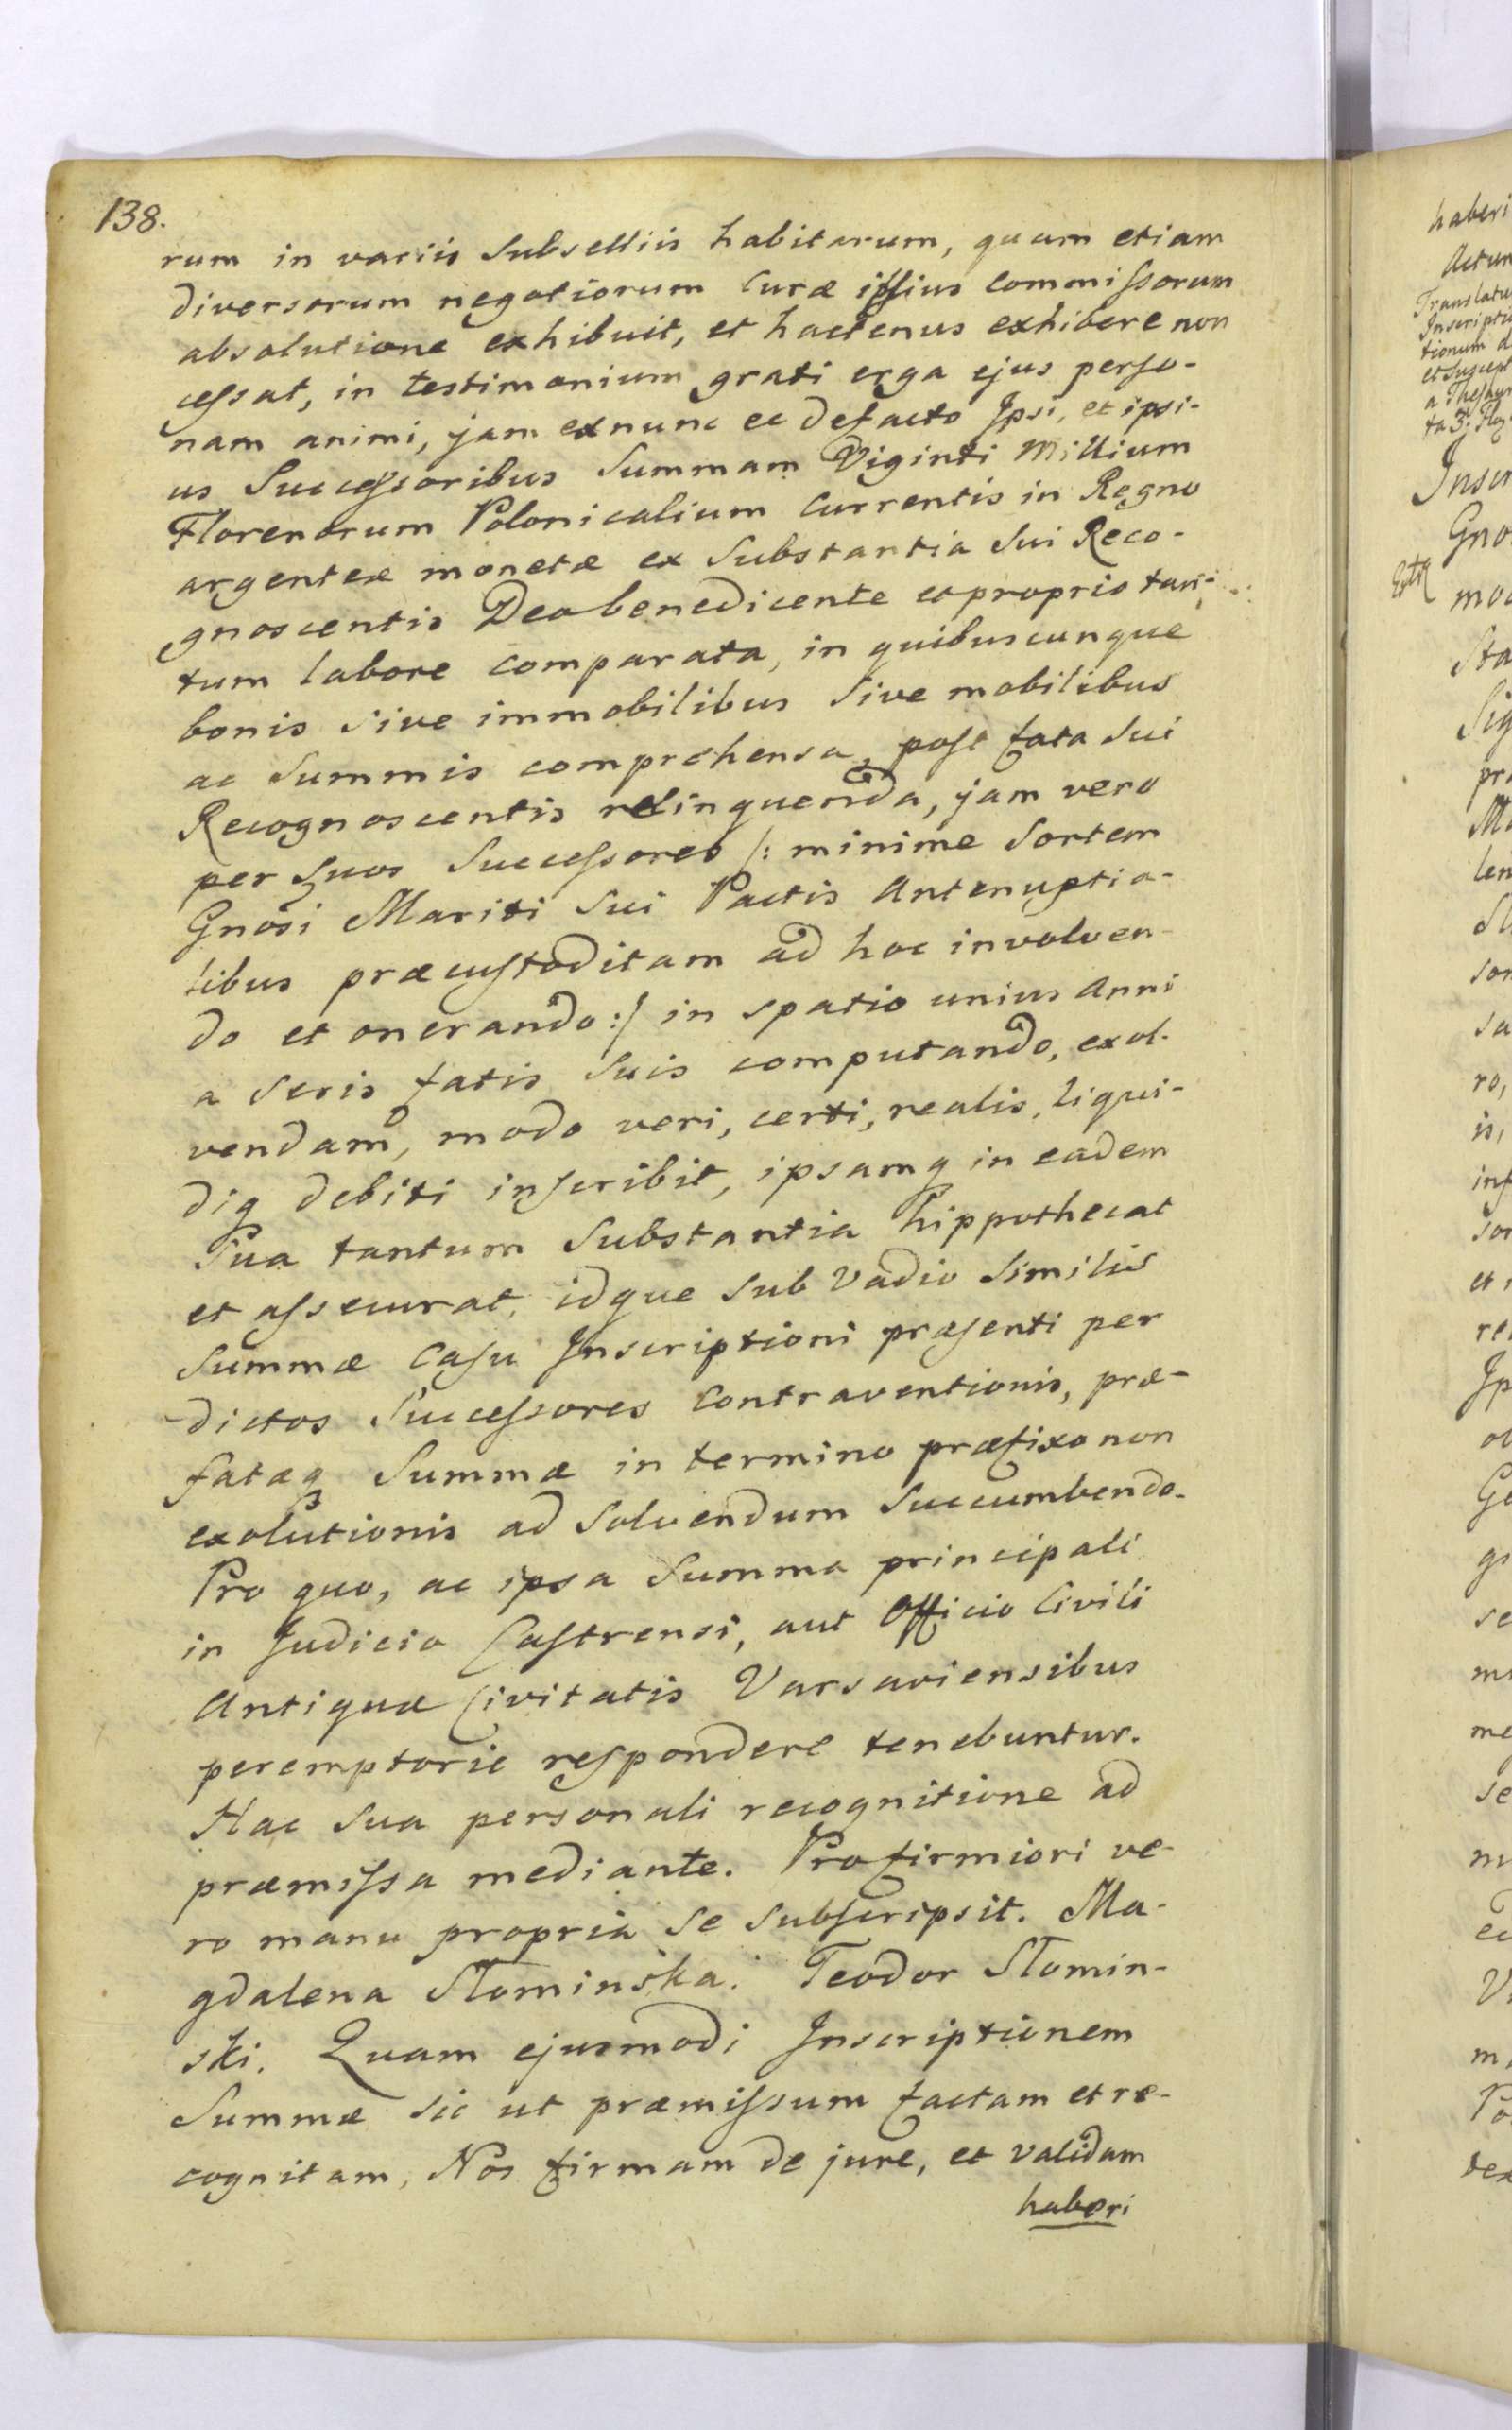 138.
rum in variis Subselliis habitarum, quam etiam
diversorum negotiorum Curæ ipsius Commissorum
absolutione exhibuit, et hactenus exhibere non
cessat, in testimonium grati erga ejus perso-
nam animi, jam exnunc ec defacto Ipsi, et ipsi-
us Successoribus Summam Viginti Millium
Florenorum Polonicalium Currentis in Regno
argenteæ monetæ ex Substantia Sui Reco-
gnoscentis Deo benedicente et proprio tan-
tum labore Comparata, in quibuscunque
bonis sive immobilibus Sive mobilibus
ac Summis comprehensa, post fata Sui
Recognoscentis relinquenda, jam vero
per Suos Successores /: minime Sortem
Gnosi Mariti Sui Pactis Antenuptia-
libus præcustoditam ad hoc involven-
do et onerando :/ in spatio unius Anni
a Seris fatis Suis computando, exol-
vendam, modo veri, certi, realis, liqui-
diq debiti inscribit, ipsamq in eadem
Sua tantum Substantia hippothecat
et assecurat, idque Sub Vadio Similis
Summæ Casu Inscriptioni præsenti per
dictos Successores Contraventionis, præ-
fatæq Summæ in termino præfixo non
exolutionis ad Solvendum Succumbendo.
Pro quo, ac ipsa Summa principali
in Judicio Castrensi, aut Officio Civili
Antiquæ Civitatis Varsaviensibus
peremptorie respondere tenebuntur.
Hac Sua personali recognitione ad
præmissa mediante. Pro firmiori ve-
ro manu propria Se Subscripsit. Ma-
gdalena Słominska. Teodor Słomin-
ski. Quam ejusmodi Inscriptionem
Summæ sic ut præmissum factam et re-
cognitam, Nos firmam de jure, et validam
haberi